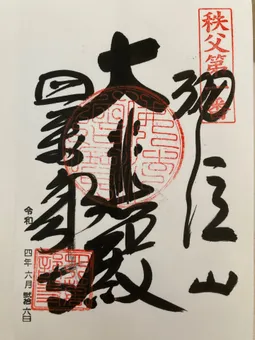 秩父第一番
誦経山
大悲殿
四萬部寺
令和四年六月六日